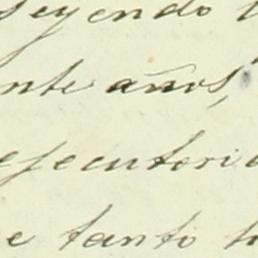 seyendo
nte años,
ejecutori
e tanto